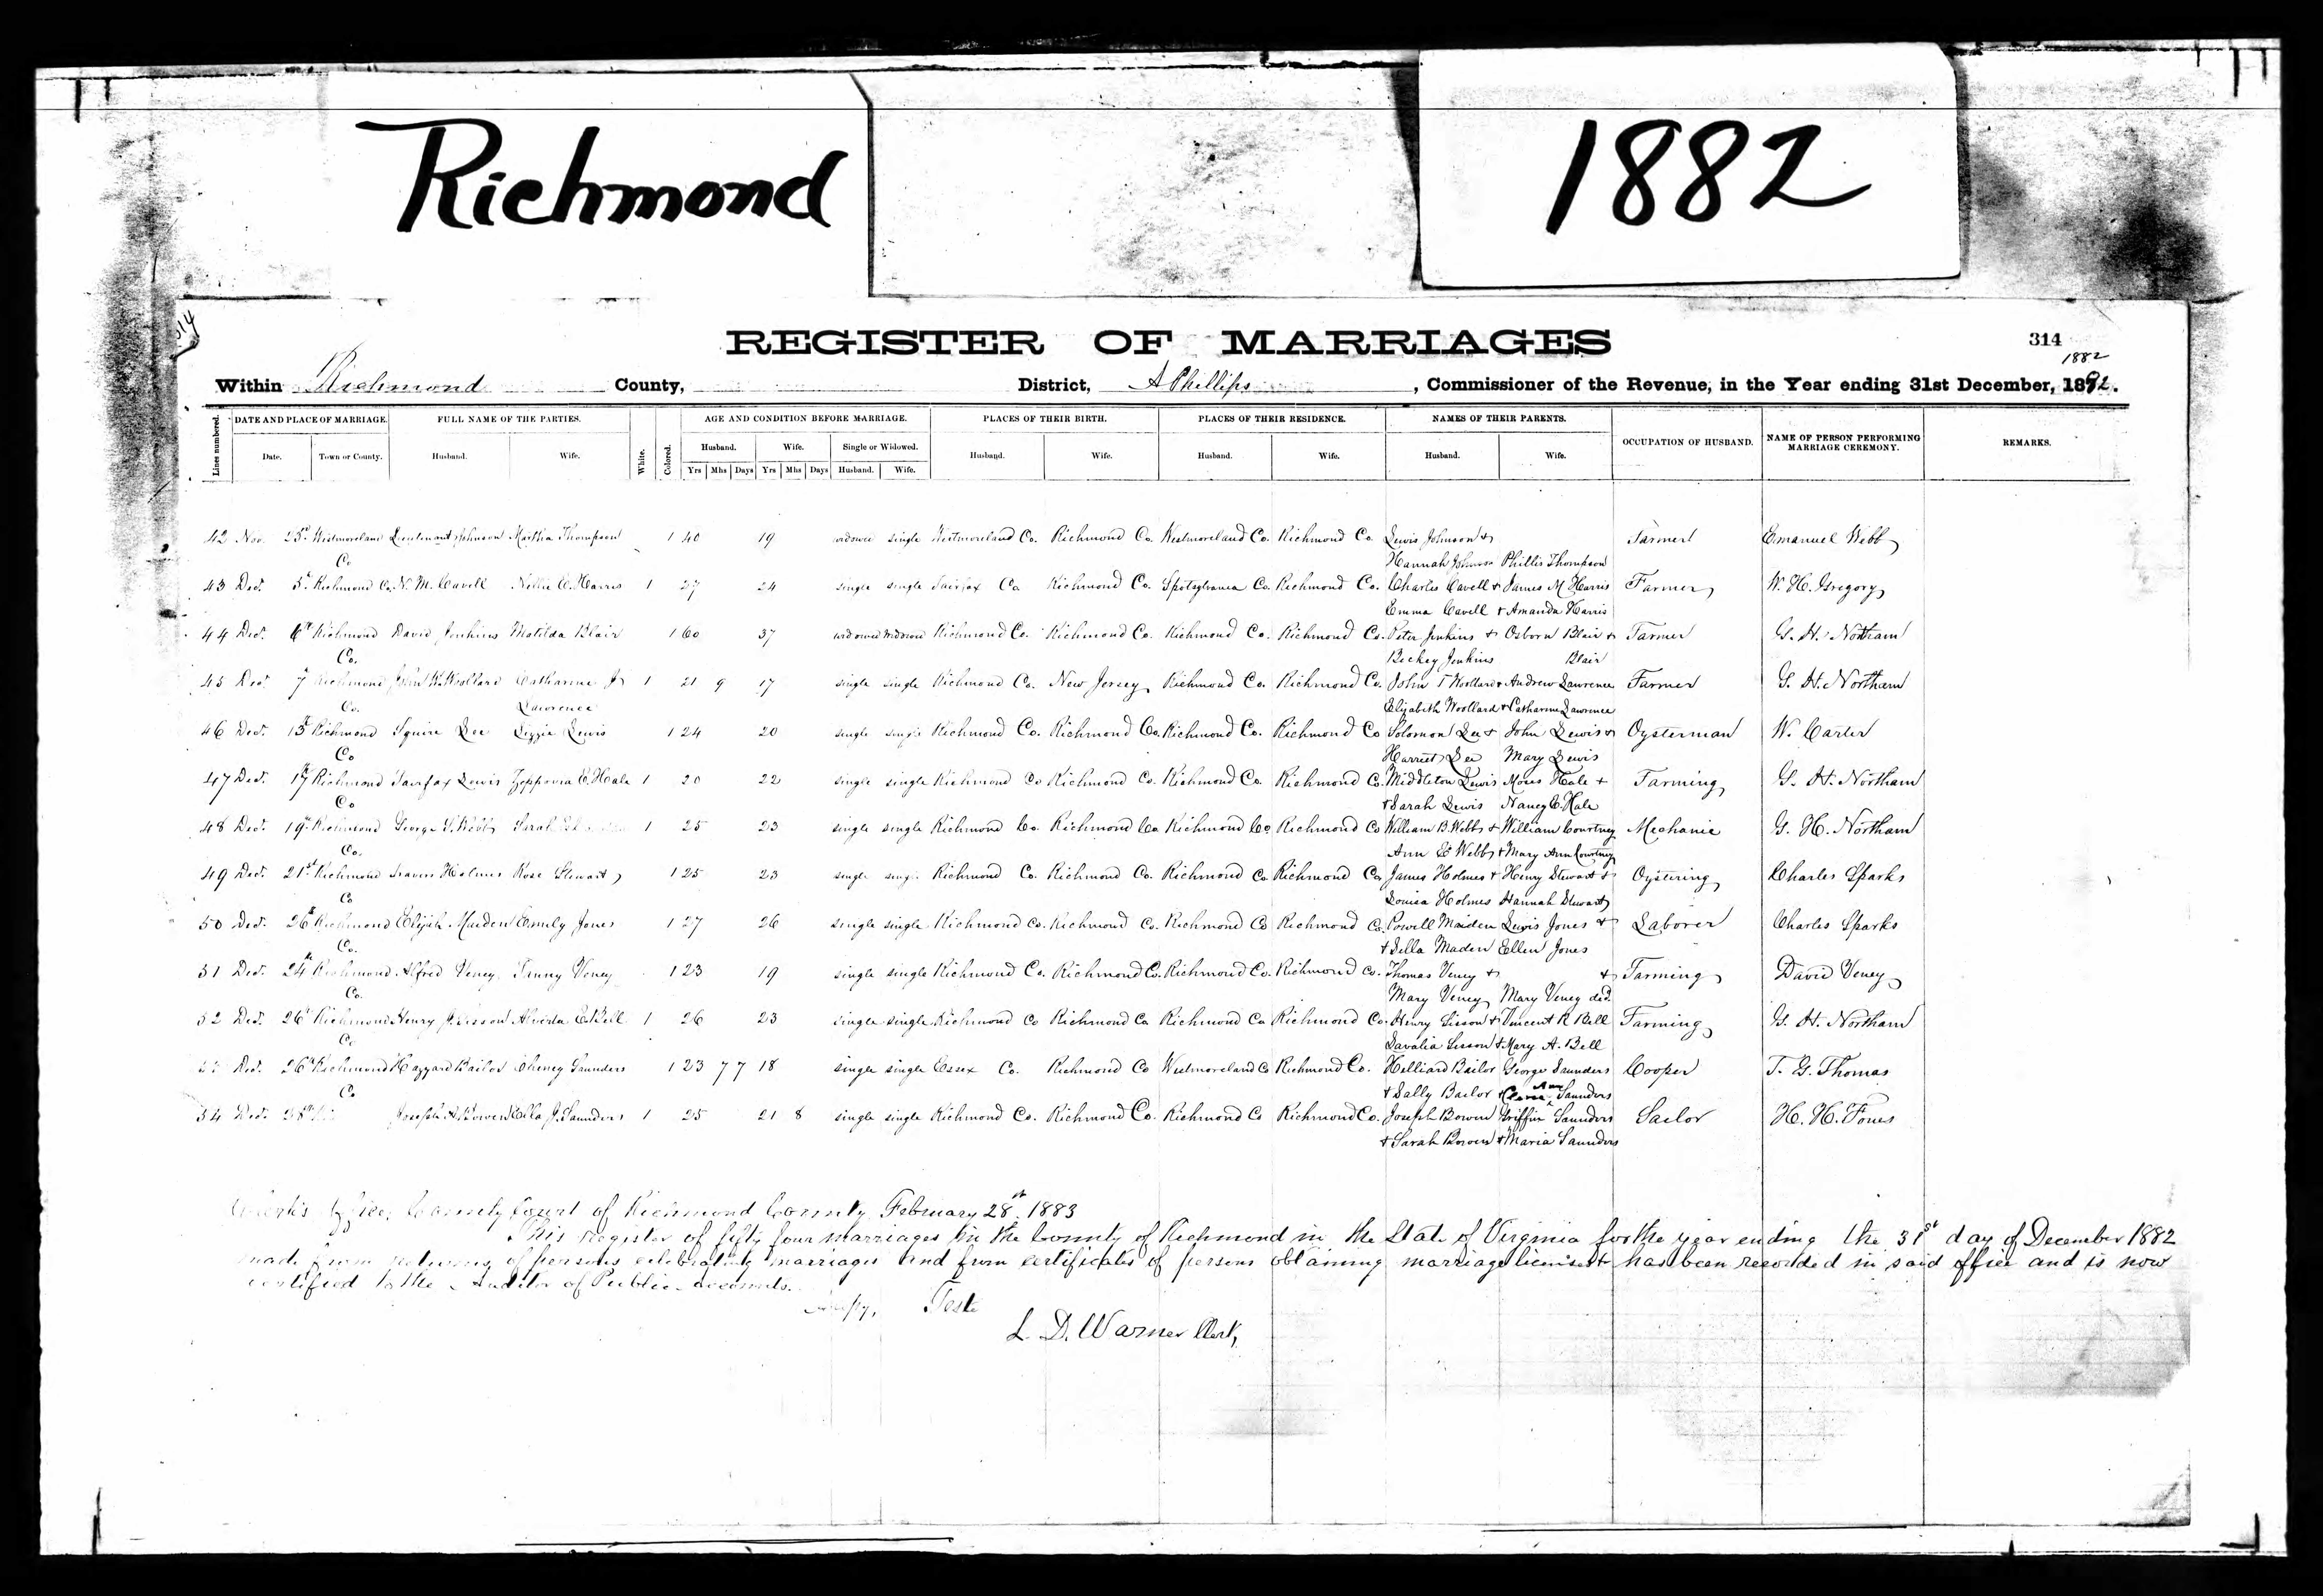 Richmond
1882
314
REGISTER OF MARRIAGES
314
1882
Within Richmond County, District, A Phillips, Commissioner of the Revenue, in the Year ending 31st December, 1882.
Lines numbered. DATE AND PLACE OF MARRIAGE. FULL NAME OF THE PARTIES. White. Colored. AGE AND CONDITION BEFORE MARRIAGE. PLACES OF THEIR BIRTH. PLACES OF THEIR RESIDENCE. NAMES OF THEIR PARENTS. OCCUPATION OF HUSBAND. NAME OF PERSON PERFORMING MARRIAGE CEREMONY. REMARKS.
Date. Town or County. Husband. Wife. Husband. Wife. Single or Widowed. Husband. Wife. Husband. Wife. Husband. Wife.
Yrs Mhs Days Yrs Mhs Days Husband. Wife.
42 Nov. 25 Westmoreland Lieutenant Johnson Martha Thompson 1 40 19 widower single Westmoreland Co. Richmond Co. Westmoreland Co. Richmond Co. Lewis Johnson & Farmer Emanuel Webb
Co Hannah Johnson Phillis Thompson
43 Dec. 5 Richmond Co. N. M. Cavell Nellie C. Harris 1 27 24 single single Fairfax Co Richmond Co. Spotsylvania Co. Richmond Co. Charles Cavell & James M Harris Farmer W. H. Gregory
Emma Cavell & Amanda Harris
44 Dec. 6th Richmond David Jenkins Matilda Blair 1 60 37 widower widowed Richmond Co. Richmond Co. Richmond Co. Richmond Co. Peter Jenkins & Osborn Blair & Farmer G. H. Northam
Co. Beckey Jenkins Blair
45 Dec. 7 Richmond John K. Woollard Catharine J 1 21 9 17 single single Richmond Co. New Jersey Richmond Co. Richmond Co. John T Woollard & Andrew Lawrence Farmer G. H. Northam
Co. Lawrence Elizabeth Woollard & Catharine Lawrence
46 Dec. 13 Richmond Squire Lee Lizzie Lewis 1 24 20 single single Richmond Co. Richmond Co. Richmond Co. Richmond Co Solomon Lee & John Lewis & Oysterman W. Carter
Co Harriet Lee Mary Lewis
47 Dec. 17 Richmond Fairfax Lewis Zepporia E. Hale 1 20 22 single single Richmond Co Richmond Co. Richmond Co. Richmond Co. Middleton Lewis Moses Hale & Farming G. H. Northam
Co & Sarah Lewis Nancy E. Hale
48 Dec. 19 Richmond George S. Webb Sarah 1 25 23 single single Richmond Co. Richmond Co Richmond Co Richmond Co William B. Webb & William Courtney Mechanic G. H. Northam
Co. Ann E Webb & Mary Ann Courtney
49 Dec. 21st Richmond Travers Holmes Rose Stewart 1 25 23 single single Richmond Co. Richmond Co. Richmond Co Richmond Co James Holmes & Henry Stewart & Oystering Charles Sparks
Co Louisa Holmes Hannah Stewart
50 Dec. 26 Richmond Elijah Maiden Emily Jones 1 27 26 single single Richmond Co. Richmond Co. Richmond Co Richmond Co. Powell Maiden Lewis Jones & Laborer Charles Sparks
Co. & Sella Maden Ellen Jones
51 Dec. 24 Richmond Alfred Veney Fanny Veney 1 23 19 single single Richmond Co. Richmond Co. Richmond Co. Richmond Co. Thomas Veney & & Farming David Veney
Co. Mary Veney Mary Veney decd.
52 Dec. 26 Richmond Henry J. Sisson Alverta E Bell 1 26 23 single single Richmond Co Richmond Co Richmond Co Richmond Co. Henry Sisson & Vincent R Bell Farming G. H. Northam
Co Davalia Sisson & Mary A. Bell
Dec. 26 Richmond Hazzard Bailor Cheney Saunders 1 23 7 7 18 single single Essex Co. Richmond Co Westmoreland Co Richmond Co. Hilliard Bailor George Saunders Cooper T. G. Thomas
Co & Sally Bailor & Ann Saunders
54 Dec. 28 Joseph A. Bowen Ella J. Saunders 1 25 21 8 single single Richmond Co. Richmond Co. Richmond Co Richmond Co. Joseph Bowen Griffin Saunders Sailor H. H. Fones
& Sarah Bowen & Maria Saunders
Clerk's Office, County Court of Richmond County February 28th 1883
This register of fifty four marriages in the County of Richmond in the State of Virginia for the year ending the 31st day of December 1882
made from returns of persons celebrating marriages and from certificates of persons obtaining marriage licenses has been recorded in said office and is now
certified to the Auditor of Public Accounts.
Copy, Teste
L. D. Warner Clerk,